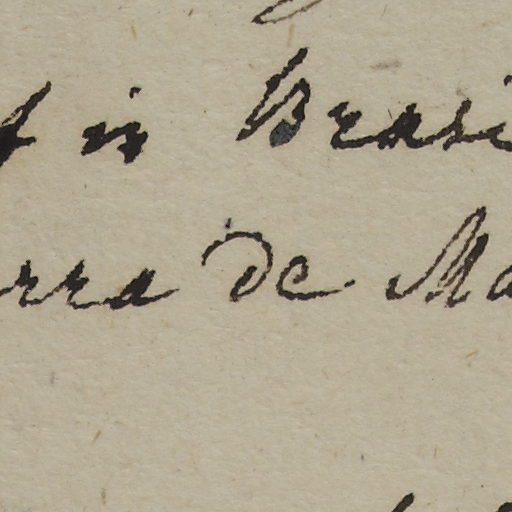 in Brasi
rra de Ma